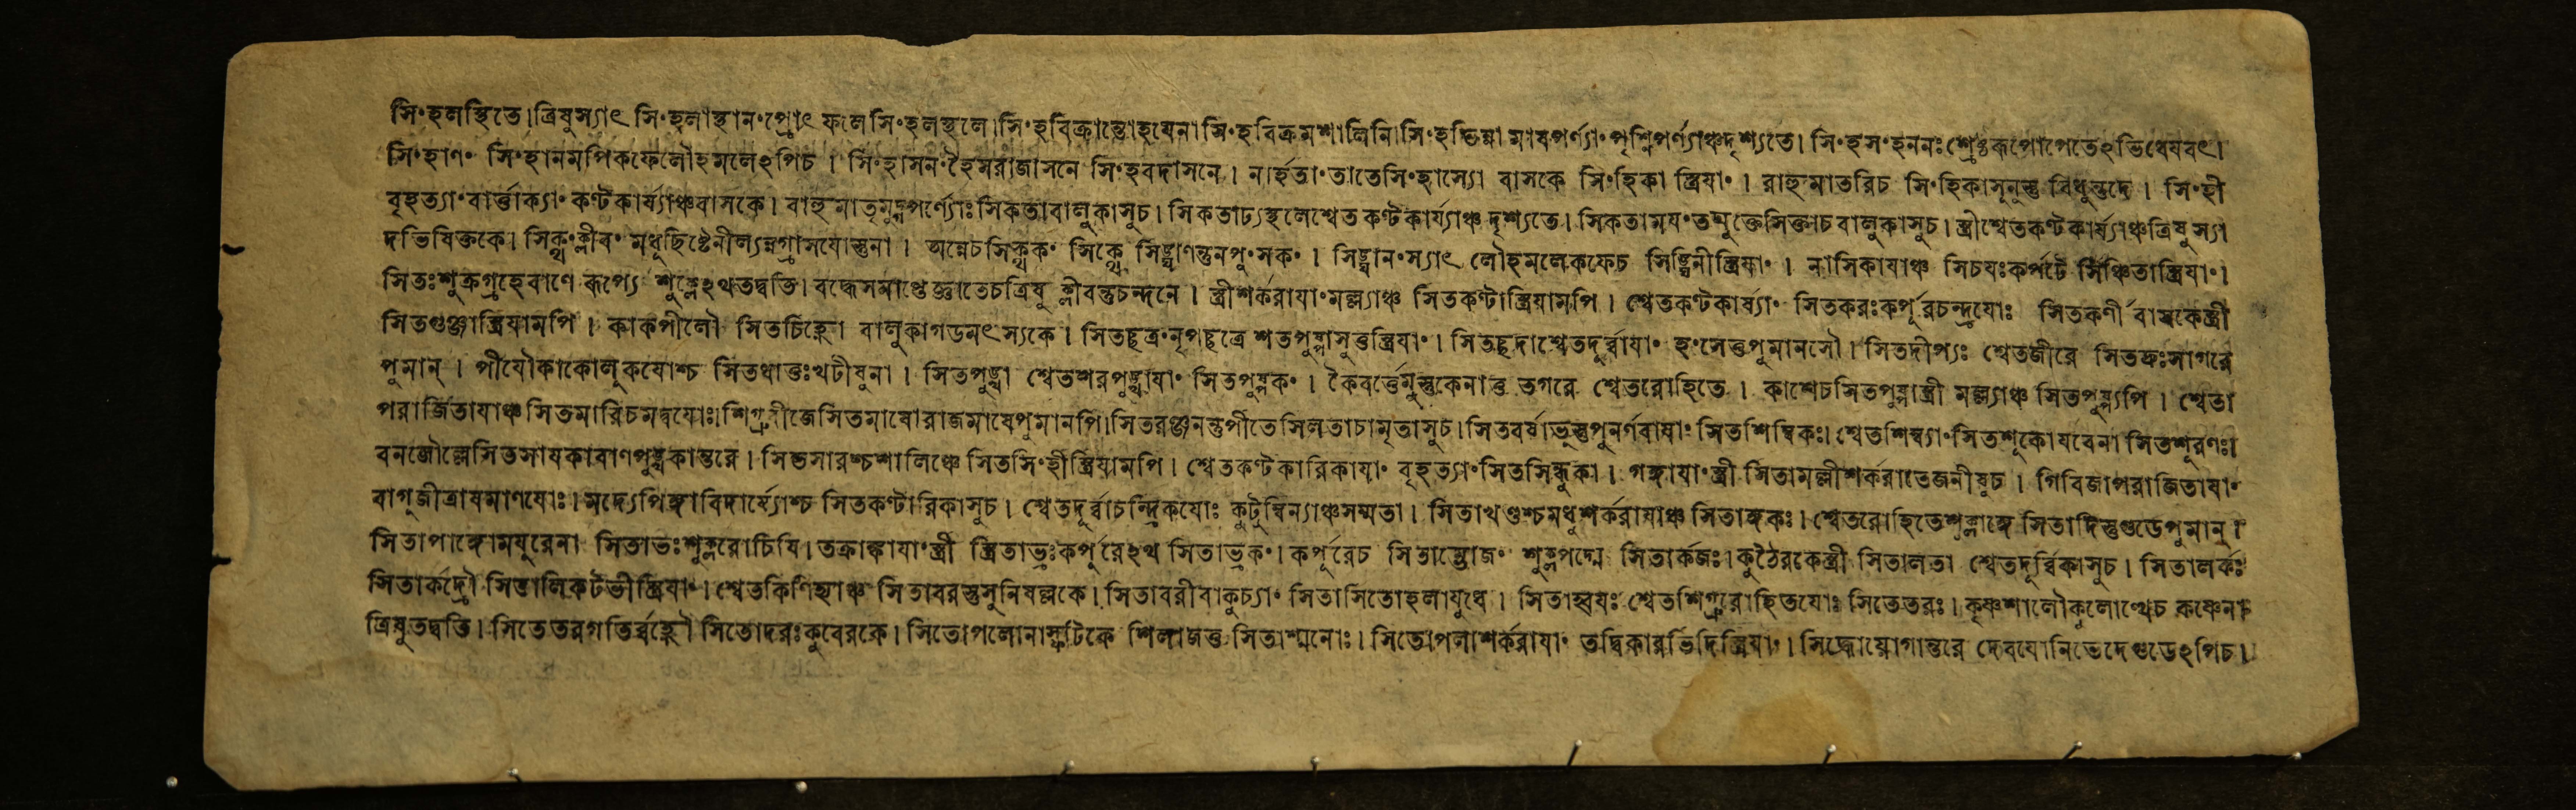 সিংহলস্থিতে।ত্রিষুস্যাৎ সিংহলাস্থানংপ্রোৎ ফলেসিংহলস্থলে।সিংহবিক্রান্তোহযেনা সিংহবিক্রমশালিনি।সিংহছিন্না মাষপর্ণ্যাং পৃশ্নিপর্ণ্যাঞ্চদৃশ্যতে। সিংহসংহননঃশ্রেষ্ঠরূপোপেতেঽভিধেযবৎ।
সিংহাণং সিংহানমপিকফেলৌহমলেঽপিচ। সিংহাসনংহৈমরাজাসনে সিংহবদাসনে। নার্হতাং তাতেসিংহাস্যো বাসকে সিংহিকা স্ত্রিযাং। রাহুমাতরিচ সিংহিকাসূনুস্তু বিধুন্তুদে। সিংহী
বৃহত্যাং বার্ত্তাক্যাং কণ্টকার্য্যাঞ্চবাসকে। বাহুমাতৃমুদ্গপর্ণ্যোঃ সিকতাবালুকাসুচ। সিকতাঢ্যস্থলেশ্বেত কণ্টকার্য্যাঞ্চ দৃশ্যতে। সিকতামযংতদ্যুক্তেসিক্তাচবালুকাসুচ। স্ত্রীশ্বেতকণ্টকার্য্যাঞ্চত্রিষুস্যা
দভিষিক্তকে। সিক্থংক্লীবং মধূছিষ্টেনীল্যন্নগ্রাসযোস্তুনা। অন্নেচসিক্থকং সিক্থে সিঙ্ঘাণন্তুনপুংসকং। সিঙ্ঘানংস্যাৎ লৌহমলেকফেচ সিঙ্ঘিনীস্ত্রিযাং। নাসিকাযাঞ্চ সিচযঃকর্পটে সিঞ্চিতাস্ত্রিযাং।
সিতঃশুক্রগ্রহেবাণে রূপ্যে শুক্লেঽথতদ্বতি। বদ্ধেসমাপ্তেজ্ঞাতেচত্রিষু ক্লীবন্তুচন্দনে। স্ত্রীশর্করাযাংমল্ল্যাঞ্চ সিতকণ্টাস্ত্রিযামপি। শ্বেতকণ্টকার্য্যাং সিতকরঃকর্পূরচন্দ্রযোঃ সিতকর্ণী বাসকেস্ত্রী
সিতগুঞ্জাস্ত্রিযামপি। কাকপীলৌ সিতচিহ্নো বালুকাগডমৎস্যকে। সিতছত্রংনৃপছত্রে শতপুষ্পাসুত্তস্ত্রিযাং। সিতছদাশ্বেতদুর্ব্বাযাং হংসেত্তুপুমানসৌ। সিতদীপ্যঃ শ্বেতজীরে সিতদ্রুঃসাগরে
পুমান্। পীযৌকাকোলুকযোশ্চ সিতধাত্তুঃখটীষুনা। সিতপুঙ্খা শ্বেতশরপুঙ্খাযাং সিতপুষ্পকং। কৈবর্ত্তেমুস্তকেনাত্তু তগরে শ্বেতরোহিতে। কাশেচসিতপুষ্পাস্ত্রী মল্ল্যাঞ্চ সিতপুষ্প্যপি। শ্বেতা
পরাজিতাযাঞ্চ সিতমারিচমদ্বযোঃ।শিগ্রুবীজেসিতমাষোরাজমাষেপুমানপি।সিতরঞ্জনন্তুপীতেসিলতাচামৃতাসুচ। সিতবর্ষাভূস্তুপুনর্ণবাযাং সিতশিম্বিকঃ। শ্বেতশিম্ব্যাংসিতশূকোযবেনা সিতশূরণঃ।
বনজৌল্লেসিতসাযকাবাণপুঙ্খকান্তরে। সিতসারশ্চশালিঞ্চে সিতসিংহীস্ত্রিযামপি। শ্বেতকণ্টকারিকাযাং বৃহত্যাংসিতসিন্ধুকা। গঙ্গাযাংস্ত্রী সিতামল্লীশর্করাতেজনীষুচ। গিবিজাপরাজিতাযাং
বাগুজীত্রাযমাণযোঃ। মদ্যেপিঙ্গাবিদার্য্যোশ্চ সিতকণ্টারিকাসুচ। শ্বেতদূর্ব্বাচন্দ্রিকযোঃ কুটুম্বিন্যাঞ্চসম্মতা। সিতাখণ্ডশ্চমধুশর্করাযাঞ্চ সিতাঙ্গকঃ। শ্বেতরোহিতেশুক্লাঙ্গে সিতাদিস্তুগুডেপুমান্।
সিতাপাঙ্গোমযুরেনা সিতাভঃশুক্লরোচিষি। তক্রাহ্বাযাংস্ত্রী স্ত্রিতাভ্রঃকর্পুরেঽথ সিতাভ্রকং। কর্পূরেচ সিতাম্ভোজং শুক্লপদ্মে সিতার্কজঃ। কুঠৈরকেস্ত্রী সিতালতা শ্বেতদূর্ব্বিকাসুচ। সিতালর্কঃ
সিতার্কদ্রৌ সিতালিকটভীস্ত্রিযাং। শ্বেতকিণিহ্যাঞ্চ সিতাবরস্তুসুনিষল্লকে। সিতাবরীবাকুচ্যাং সিতাসিতোহলাযুধে। সিতাহ্বযঃ শ্বেতশিগ্রুরোহিতযোঃ সিতেতরঃ। কৃষ্ণশালৌকুলোত্থেচ কষ্ণেনা
ত্রিষুতদ্বতি। সিতেতরগতির্ব্বহ্নৌ সিতোদরঃকুবেরকে। সিতোপলোনাস্ফটিকে শিলাজত্তু সিতাশ্মনোঃ। সিতোপলাশর্করাযাং তদ্বিকারভিদিস্ত্রিযাং। সিদ্ধোযোগান্তরে দেবযোনিভেদেগুডেঽপিচ।